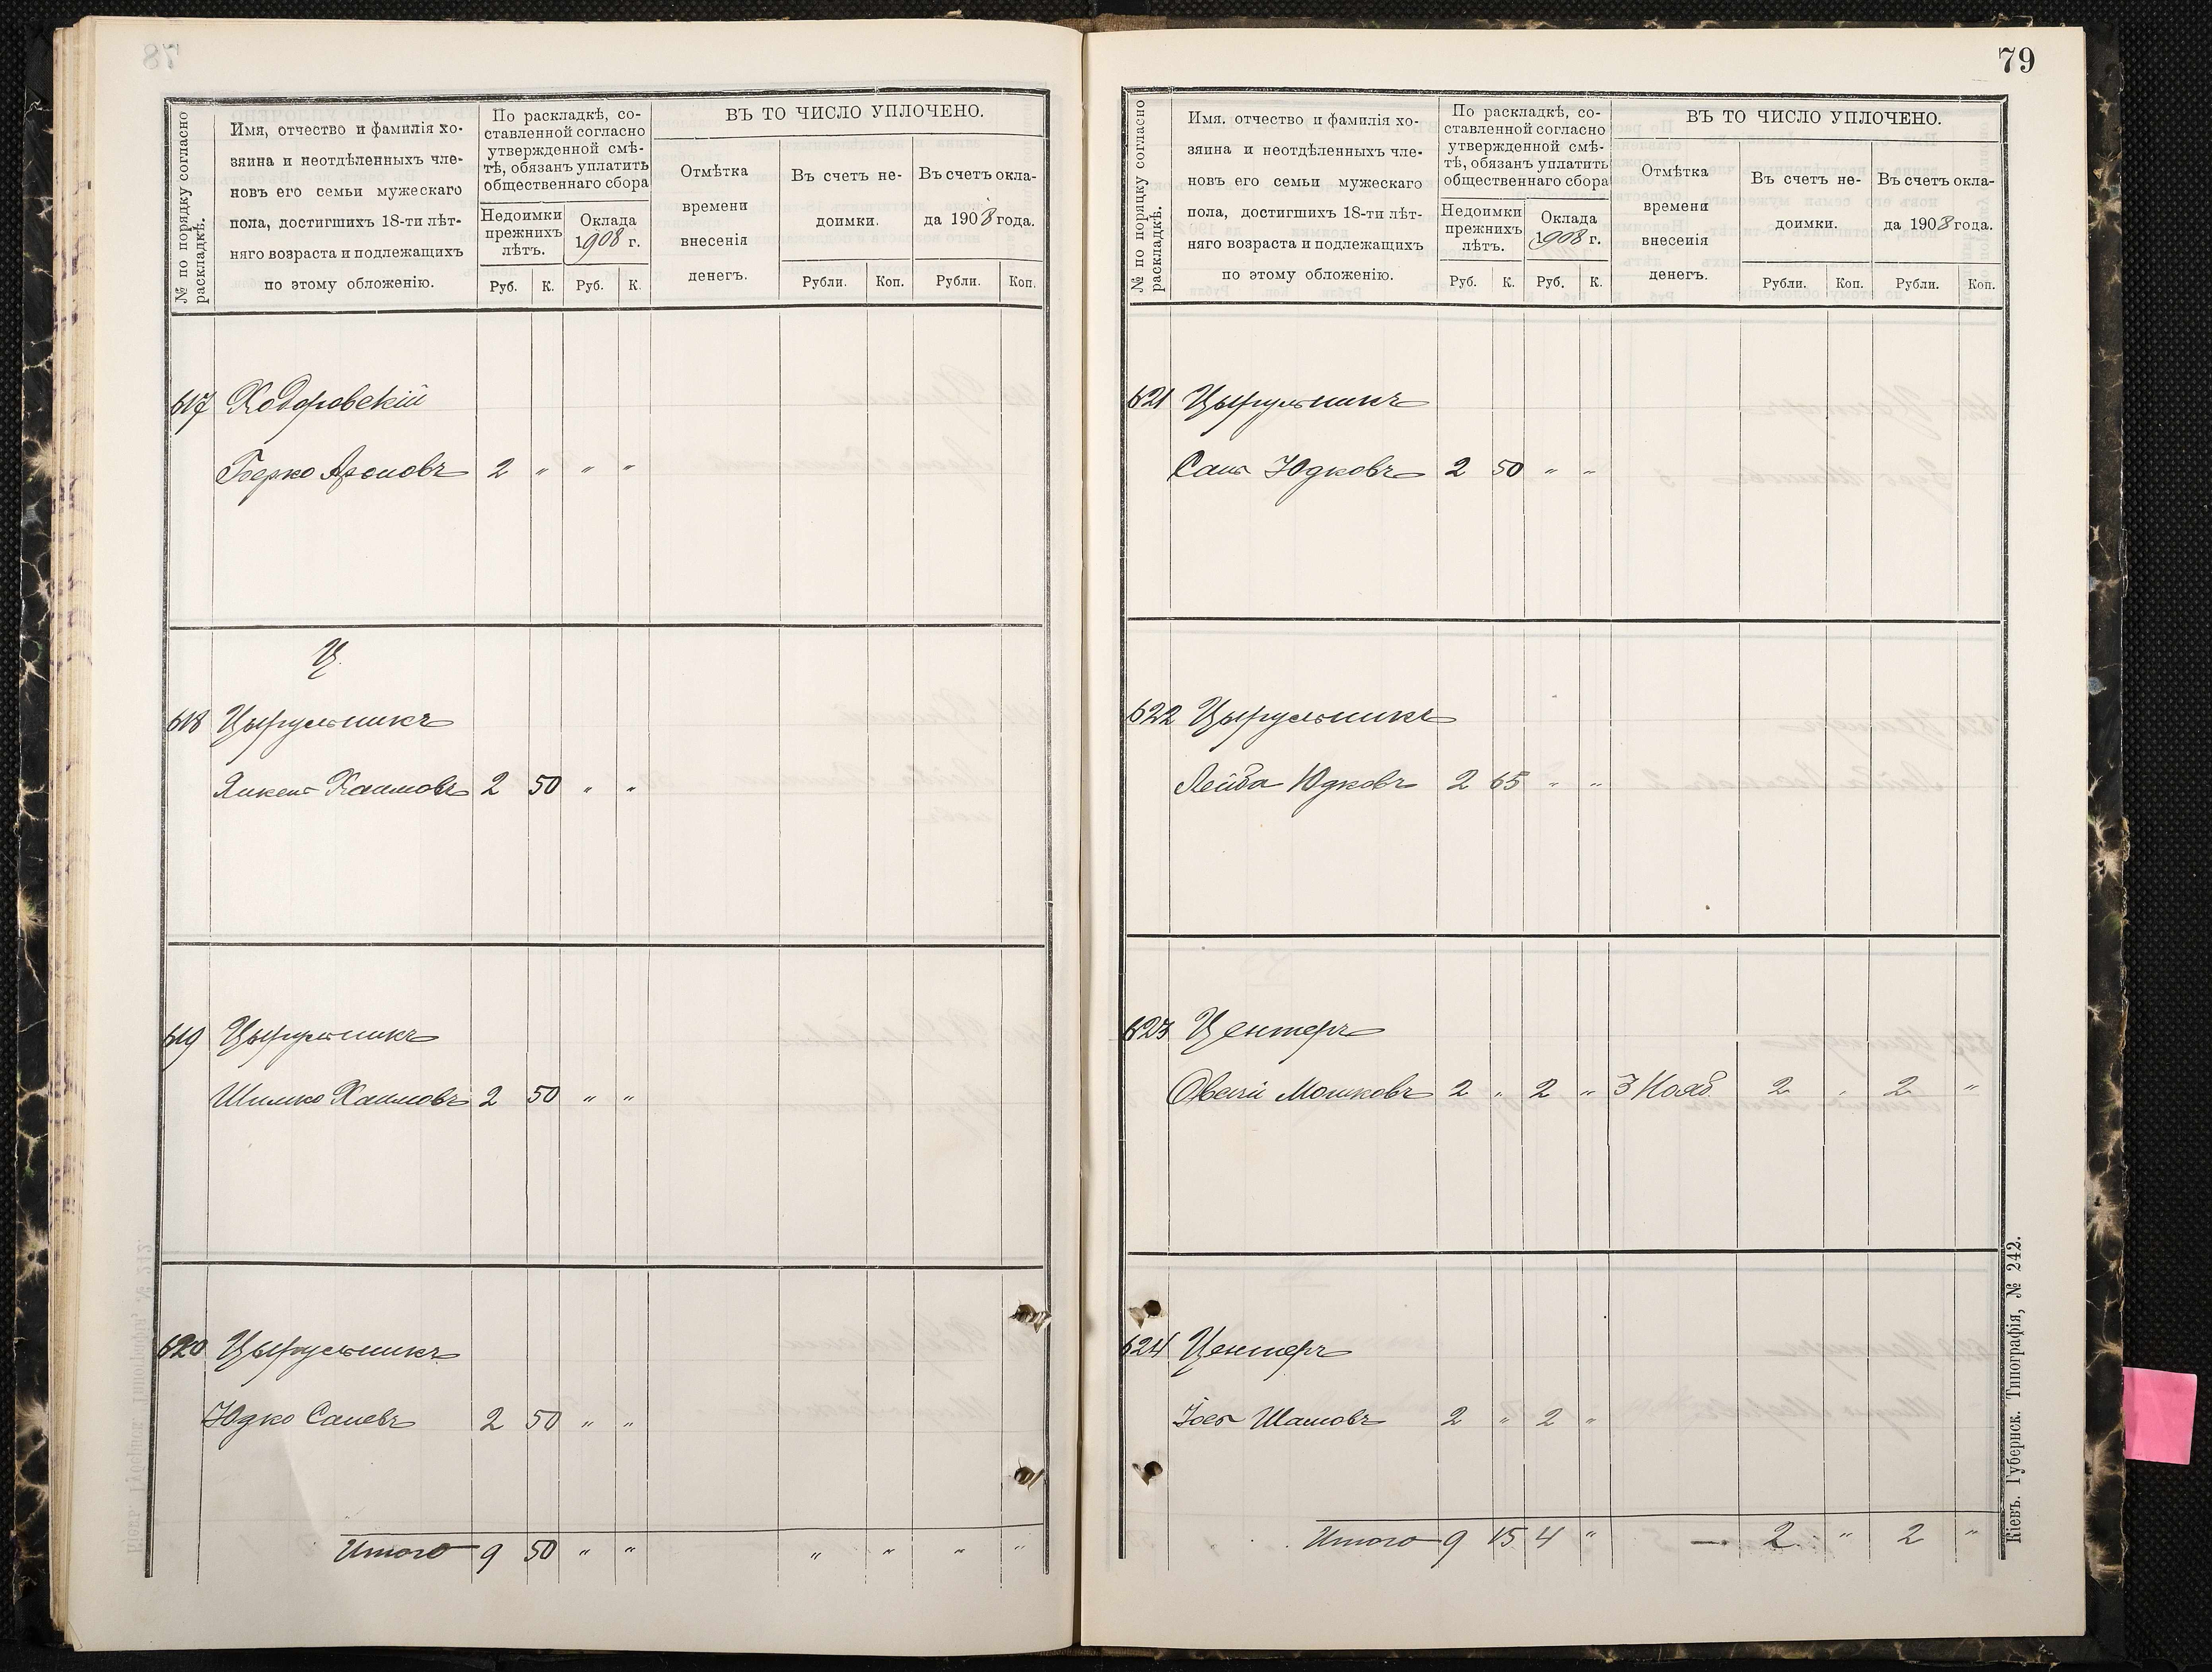 № по порядку согласно
раскладкѣ.
Имя, отчество и фамилія хо-
зяина и неотдѣленныхъ чле-
новъ его семьи мужескаго
пола, достигшихъ 18-ти лѣт-
няго возраста и подлежащихъ
по этому обложенію.
По раскладкѣ, со-
ставленной согласно
утвержденной смѣ-
тѣ, обязанъ уплатить
общественнаго сбора
Недоимки
прежнихъ
лѣтъ.
Оклада
1908 г.
Руб. К. Руб. К.
ВЪ ТО ЧИСЛО УПЛОЧЕНО.
Отмѣтка
времени
внесенія
денегъ.
Въ счетъ не-
доимки.
Въ счетъ окла-
да 1908 года.
Рубли. Коп. Рубли. Коп.
617 Ходоровскій
Берко Ароновъ 2 " " "
Ц.
618 Цырульникъ
Янкель Хаимовъ 2 50 " "
619 Цырульникъ
Шимко Хаимовъ 2 50 " "
620 Цырульникъ
Юдко Саневъ 2 50 " "
Итого 9 50 " " " " " "
79
№ по порядку согласно
раскладкѣ.
Имя. отчество и фамилія хо-
зяина и неотдѣленныхъ чле-
новъ его семьи мужескаго
пола, достигшихъ 18-ти лѣт-
няго возраста и подлежащихъ
по этому обложенію.
По раскладкѣ, со-
ставленной согласно
утвержденной смѣ-
тѣ, обязанъ уплатить
общественнаго сбора
Недоимки
прежнихъ
лѣтъ.
Оклада
1908 г.
Руб. К. Руб. К.
ВЪ ТО ЧИСЛО УПЛОЧЕНО.
Отмѣтка
времени
внесенія
денегъ.
Въ счетъ не-
доимки.
Въ счетъ окла-
да 1908 года.
Рубли. Коп. Рубли. Коп.
621 Цырульникъ
Юдковъ 2 50 " "
622 Цырульникъ
Лейба Юдковъ 2 65 " "
623 Центеръ
Овсій Мошковъ 2 " 2 " 3 Нояб. 2 " 2 "
624 Центеръ
Іось 2 " 2 "
Итого 9 15 4 " — 2 " 2 "
Кіевъ. Губернск. Типографія, № 242.